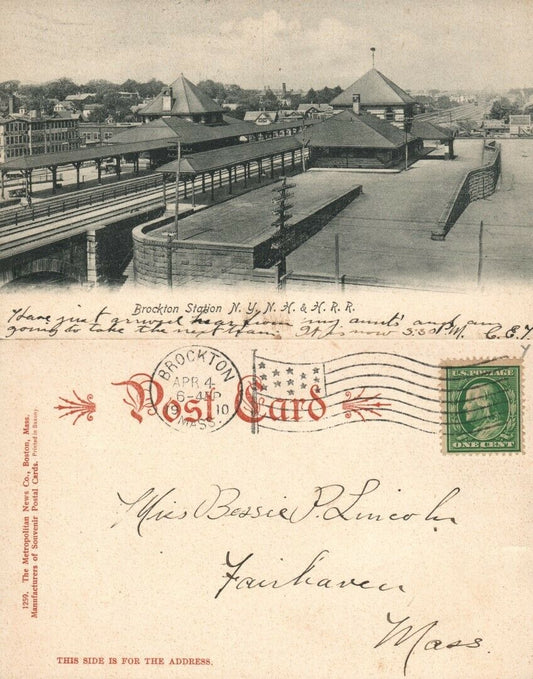 Brockton Station N. Y., N. H. & H. R. R.
Have just arrived here from my aunt's and am
going to take the next train. It is now 5:35 P.M. C.E.T.
BROCKTON
APR 4
6-
1910
MASS.
Post Card
U.S. POSTAGE
ONE CENT
Miss Bessie P. Lincoln
Fairhaven
Mass.
THIS SIDE IS FOR THE ADDRESS.
1259. The Metropolitan News Co., Boston, Mass.
Manufacturers of Souvenir Postal Cards. Printed in Saxony.